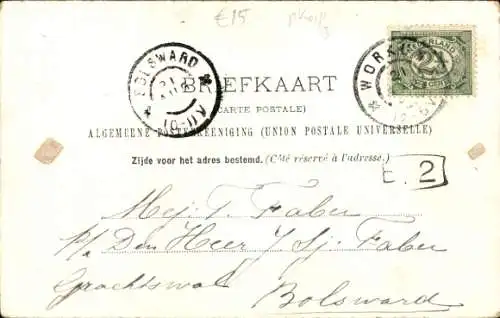 €15
BOLSWARD
21
10-11
BRIEFKAART
(CARTE POSTALE)
ALGEMEENE POSTVEREENIGING (UNION POSTALE UNIVERSELLE)
Zijde voor het adres bestemd. (Côté réservé à l'adresse.)
WORK
2½
CENT
E. 2
Mej: T. Faber
p/a Den Heer J. Sj. Faber
Grachtswal
Bolsward